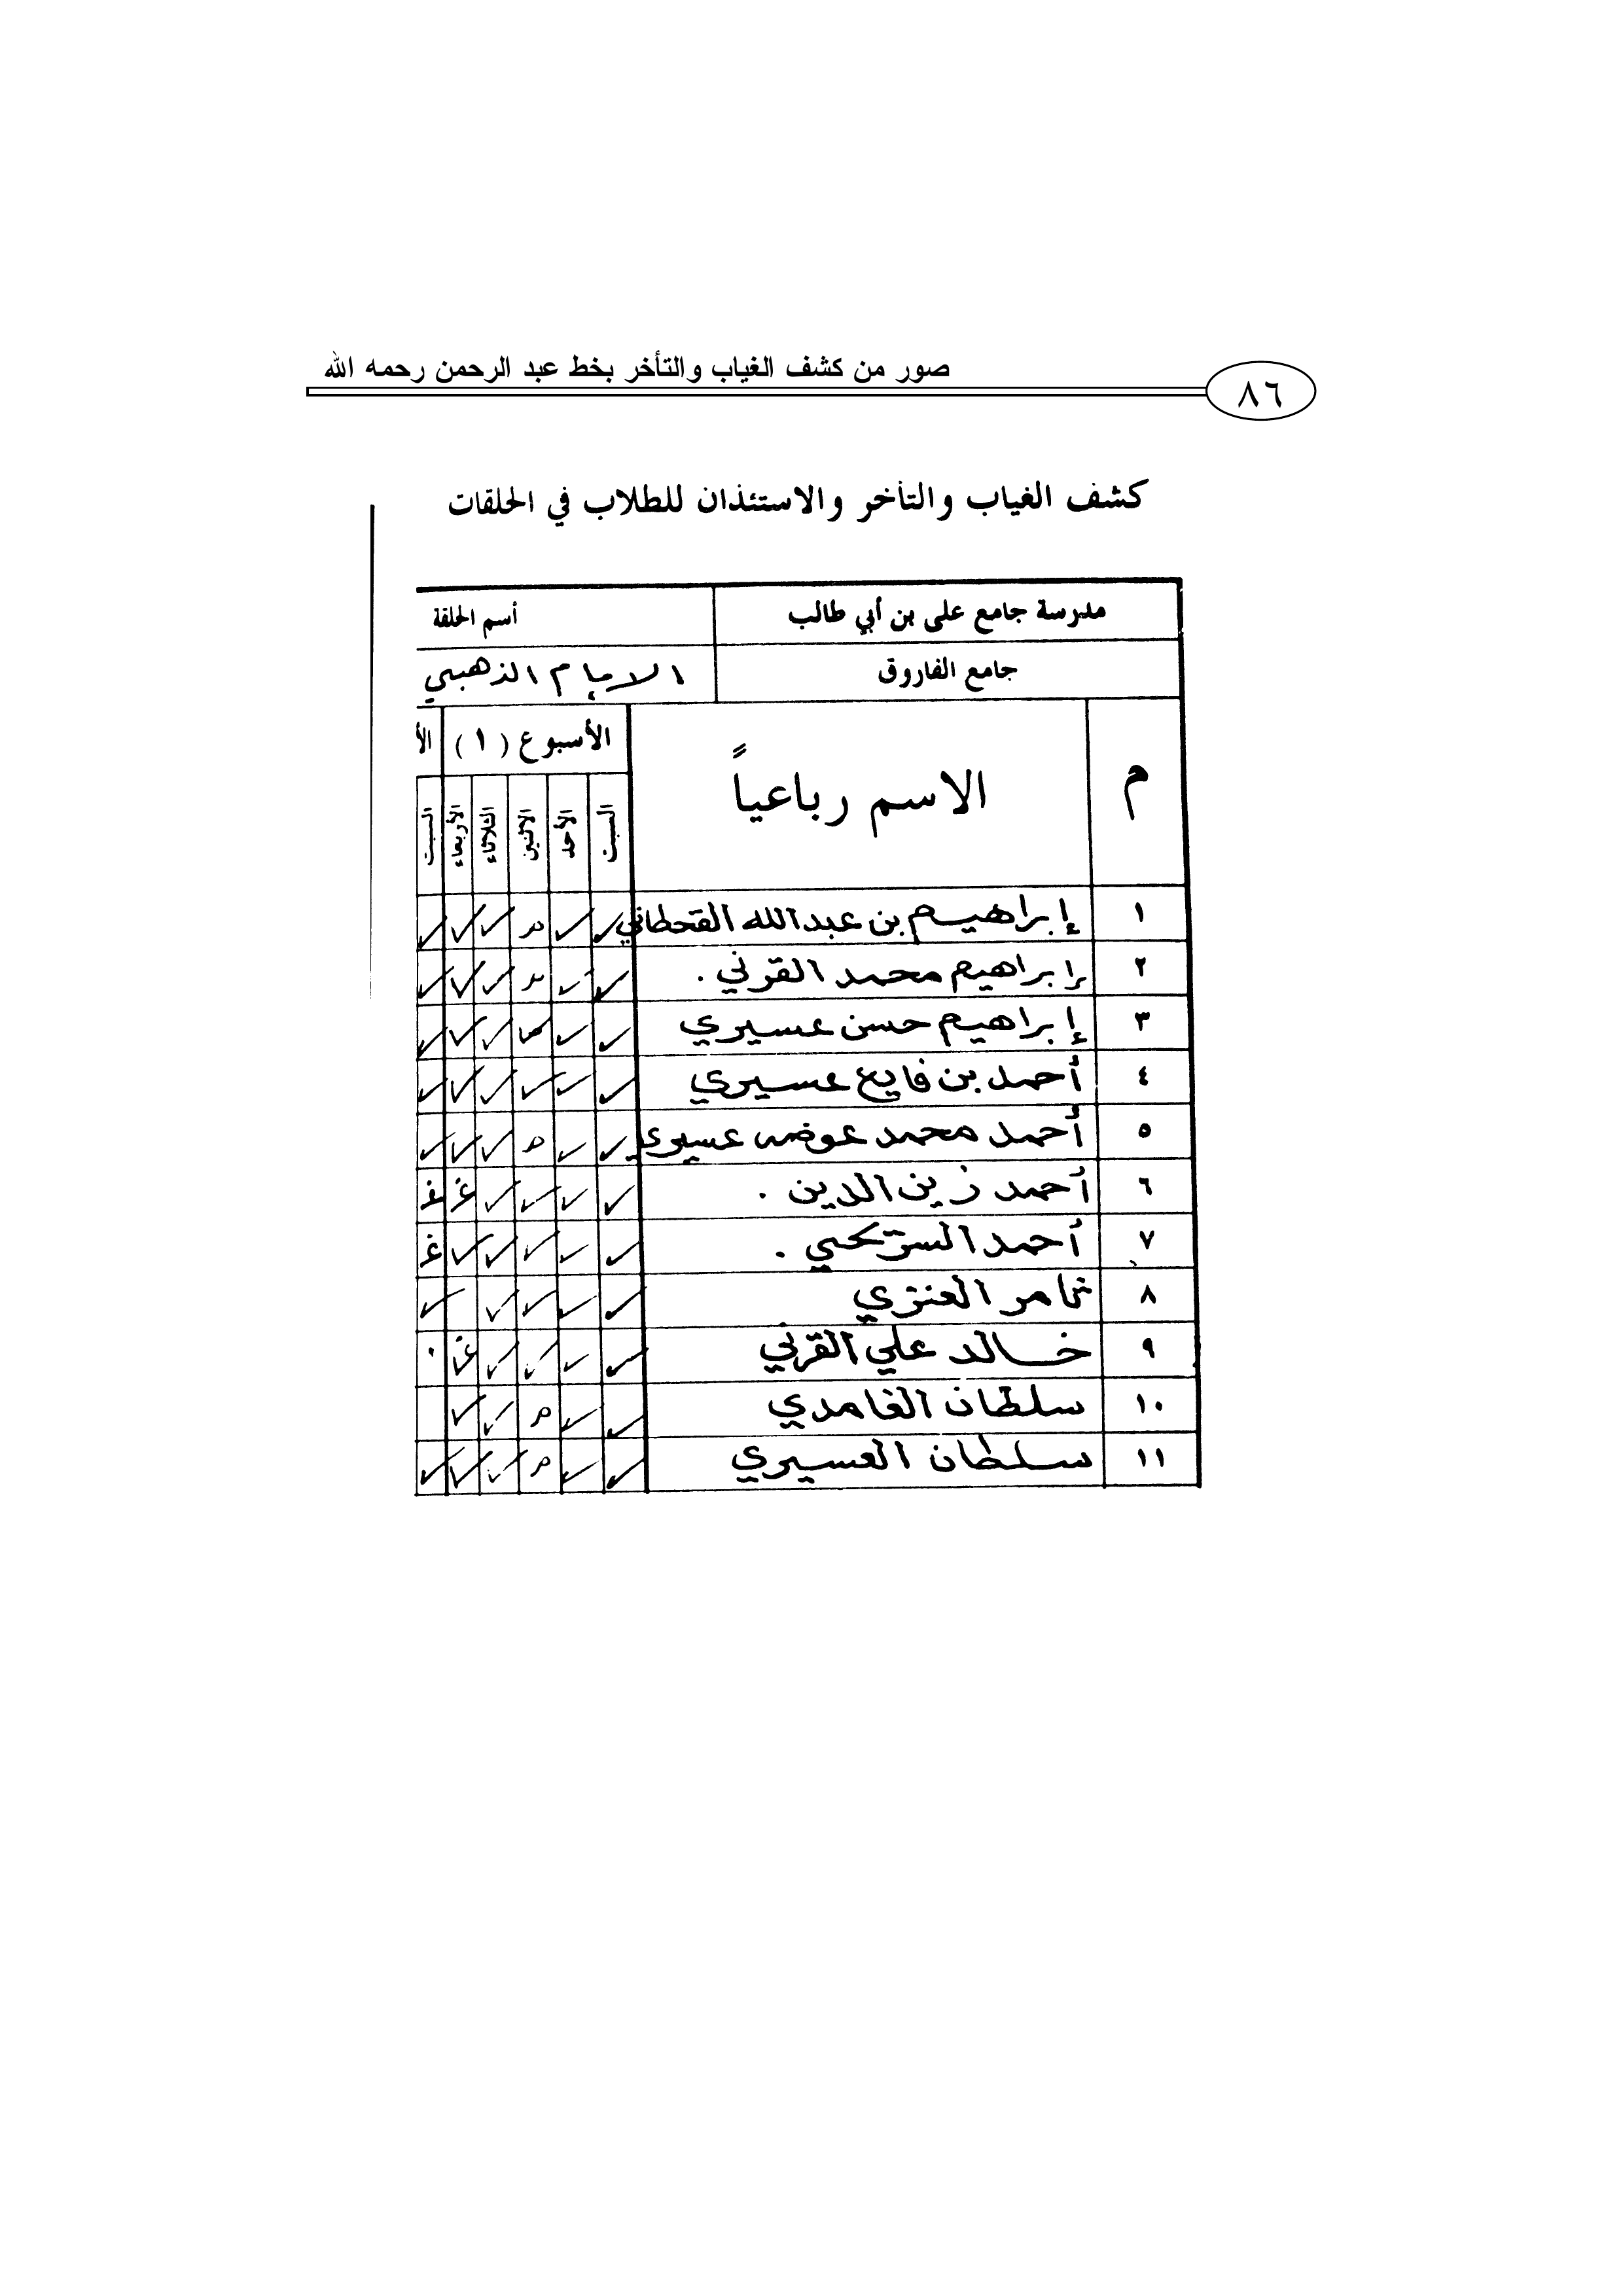 صور من كشف الغياب والتأخر بخط عبد الرحمن رحمه الله
٨٦
كشف الغياب والتأخر والاستئذان للطلاب في الحلقات
مدرسة جامع على بن أبي طالب أسم الحلقة
جامع الفاروق الامام الذهبي
م الاسم رباعياً الأسبوع (١) الأ
السبت الأحد الاثنين الثلاثاء الأربعاء السبت
١ إبراهيم بن عبدالله القحطاني ✓ ✓ م ✓ ✓ ✓
٢ إبراهيم محمد القرني . ✓ ✓ م ✓ ✓ ✓
٣ إبراهيم حسن عسيري ✓ ✓ ✓ ✓ ✓
٤ أحمد بن فايع عسيري ✓ ✓ ✓ ✓ ✓ ✓
٥ أحمد محمد عوضه عسيري ✓ ✓ م ✓ ✓ ✓
٦ أحمد زين الدين . ✓ ✓ ✓ ✓ غ غ
٧ أحمد . ✓ ✓ ✓ ✓ ✓ غ
٨ ثامر العنزي ✓ ✓ ✓ ✓ ✓
٩ خالد علي القرني ✓ ✓ ✓ ✓ غ .
١٠ سلطان الغامدي ✓ ✓ م ✓ ✓
١١ سلطان العسيري ✓ ✓ م ✓ ✓ ✓